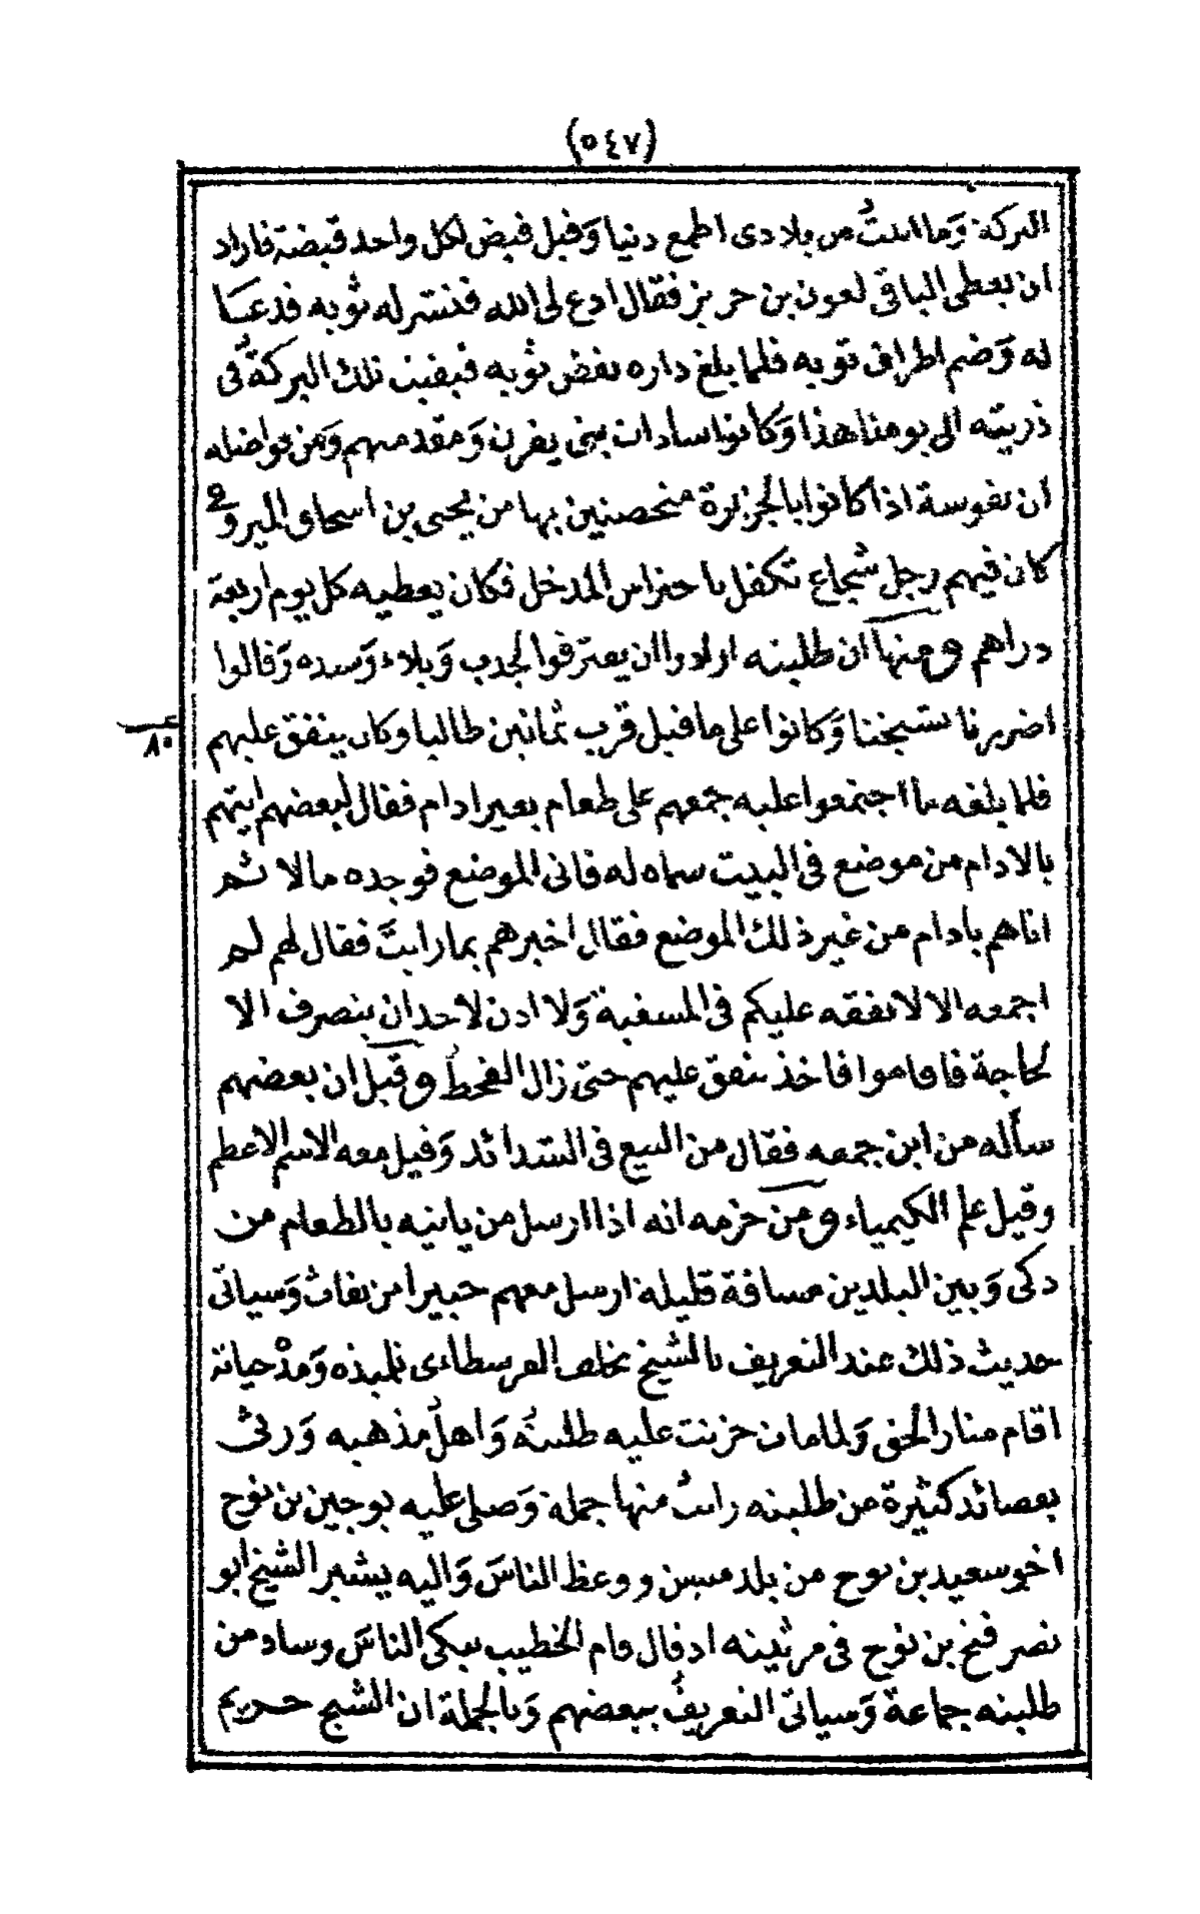 (٥٤٧)
البركة وَما اتيتُ من بلادى اطمع دنيا وَقيل قبض لكل واحد قبضة فاراد
ان يعطى الباقى لعون بن حريز فقال ادع لى الله فنشر له ثوبه فدعا
له وَضم اطرافى ثوبه فلما بلغ داره نفض ثوبه فبقيت تلك البركةُ فى
ذريته الى يومنا هذا وَكانوا سادات بنى يفرن وَمقدمهم وَمن فواضله
ان نفوسة اذا كانوا بالجزيرة متحصنين بها من يحيى بن اسحاق الميروقى
كان فيهم رجل شجاع تكفل باحتراس المدخل فكان يعطيه كل يوم اربعة
دراهم ومنها ان طلبته ارادوا ان يعترفوا لجدب وَبلاء وَسده وَقالوا
اضررنا بشيخنا وَكانوا على ما قيل قرب ثمانين طالبا وكان ينفق عليهم
عــ ٨٠
فلما بلغه ما اجتمعوا عليه جمعهم على طعام بغير ادام فقال لبعضهم ايتهم
بالادام من موضع فى البيت سماه له فاتى الموضع فوجده مالا ثم
اتاهم بادام من غير ذلك الموضع فقال اخبرهم بما رايتَ فقال لهم لم
اجمعه الا لانفقه عليكم فى المسغبة وَلا اذن لاحد ان ينصرف الا
لحاجة فاقاموا فاخذ ينفق عليهم حتى زال القحطُ وقيل ان بعضهم
سأله من اين جمعه فقال من البيع فى الشدائد وَقيل معه الاسم الاعظم
وقيل علم الكيمياء ومن حزمه انه اذا ارسل من ياتيه بالطعام من
دكى وَبين البلدين مسافة قليلة ارسل معهم خبيرا من نفاث وَسياتى
حديث ذلك عند التعريف بالشيخ يخلف الفرسطاءى تلميذه وَمدْ حياته
اقام منار الحق وَلما مات حزنت عليه طلبتُه وَاهلُ مذهبه وَرثى
بقصائد كثيرة من طلبته رايتُ منها جملة وَصلى عليه بوجين بن نوح
اخو سعيد بن نوح من بلد ميس ووعظ الناسَ وَاليه يشير الشيخ ابو
نصر فتح بن نوح فى مرثيته اذ قال قام الخطيب يبكى الناسَ وساد من
طلبته جماعة وَسياتى التعريفُ ببعضهم وَبالجملة ان الشيخ حريم